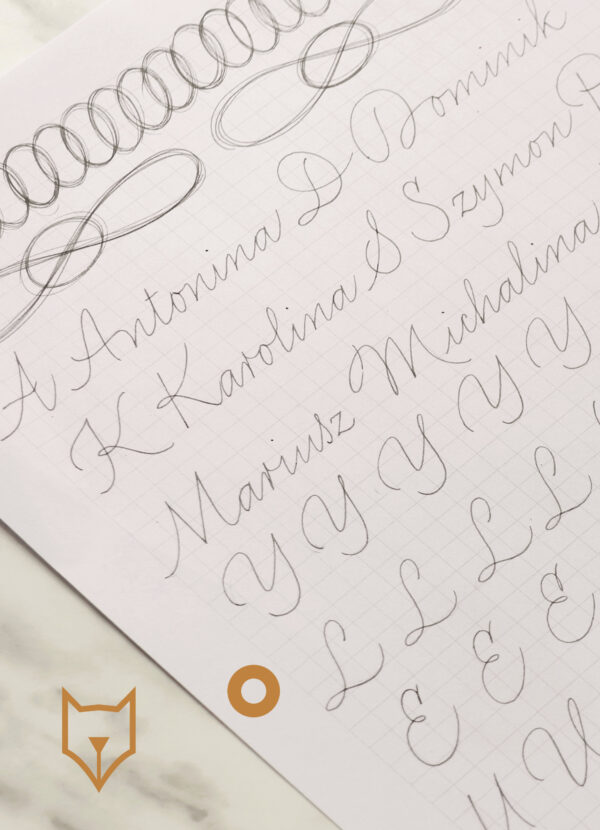 A Antonina D Dominik
K Karolina S Szymon
Mariusz Michalina
Y Y Y Y Y
L L L L
E E E
U U